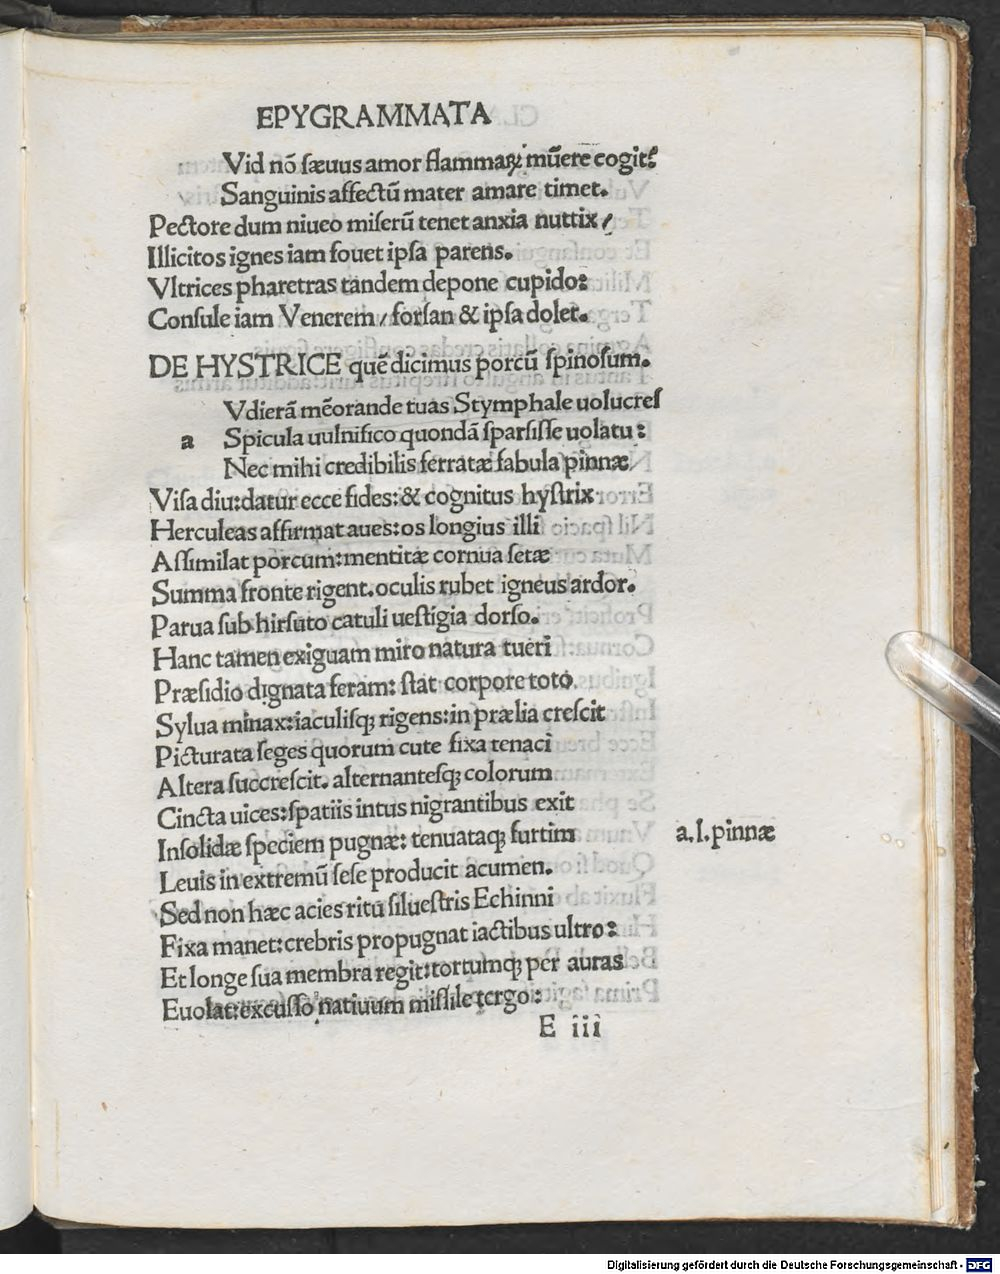 EPYGRAMMATA
Vid nõ sæuus amor flammaꝝ mũere cogit?
Sanguinis affectũ mater amare timet.
Pectore dum niueo miserũ tenet anxia nuttix/
Illicitos ignes iam fouet ipsa parens.
Vltrices pharetras tandem depone cupido:
Consule iam Venerem/forsan & ipsa dolet.
DE HYSTRICE quẽ dicimus porcũ spinosum.
Vdierã mẽorande tuas Stymphale uolucres
a Spicula uulnifico quondã sparsisse uolatu:
Nec mihi credibilis ferratæ fabula pinnæ
Visa diu:datur ecce fides:& cognitus hystrix
Herculeas affirmat aues:os longius illi
Assimilat porcum:mentitæ cornua setæ
Summa fronte rigent.oculis rubet igneus ardor.
Parua sub hirsuto catuli uestigia dorso.
Hanc tamen exiguam miro natura tueri
Præsidio dignata feram: stat corpore toto.
Sylua minax:iaculisqꝫ rigens:in prælia crescit
Picturata seges quorum cute fixa tenaci
Altera succrescit. alternantesqꝫ colorum
Cincta uices:spatiis intus nigrantibus exit
Insolidæ speciem pugnæ: tenuataqꝫ furtim a.l.pinnæ
Leuis in extremũ sese producit acumen.
Sed non hæc acies ritu siluestris Echinni
Fixa manet:crebris propugnat iactibus ultro:
Et longe sua membra regit:tortumqꝫ per auras
Euolat:excusso natiuum missile tergo:
E iii
Digitalisierung gefördert durch die Deutsche Forschungsgemeinschaft - DFG